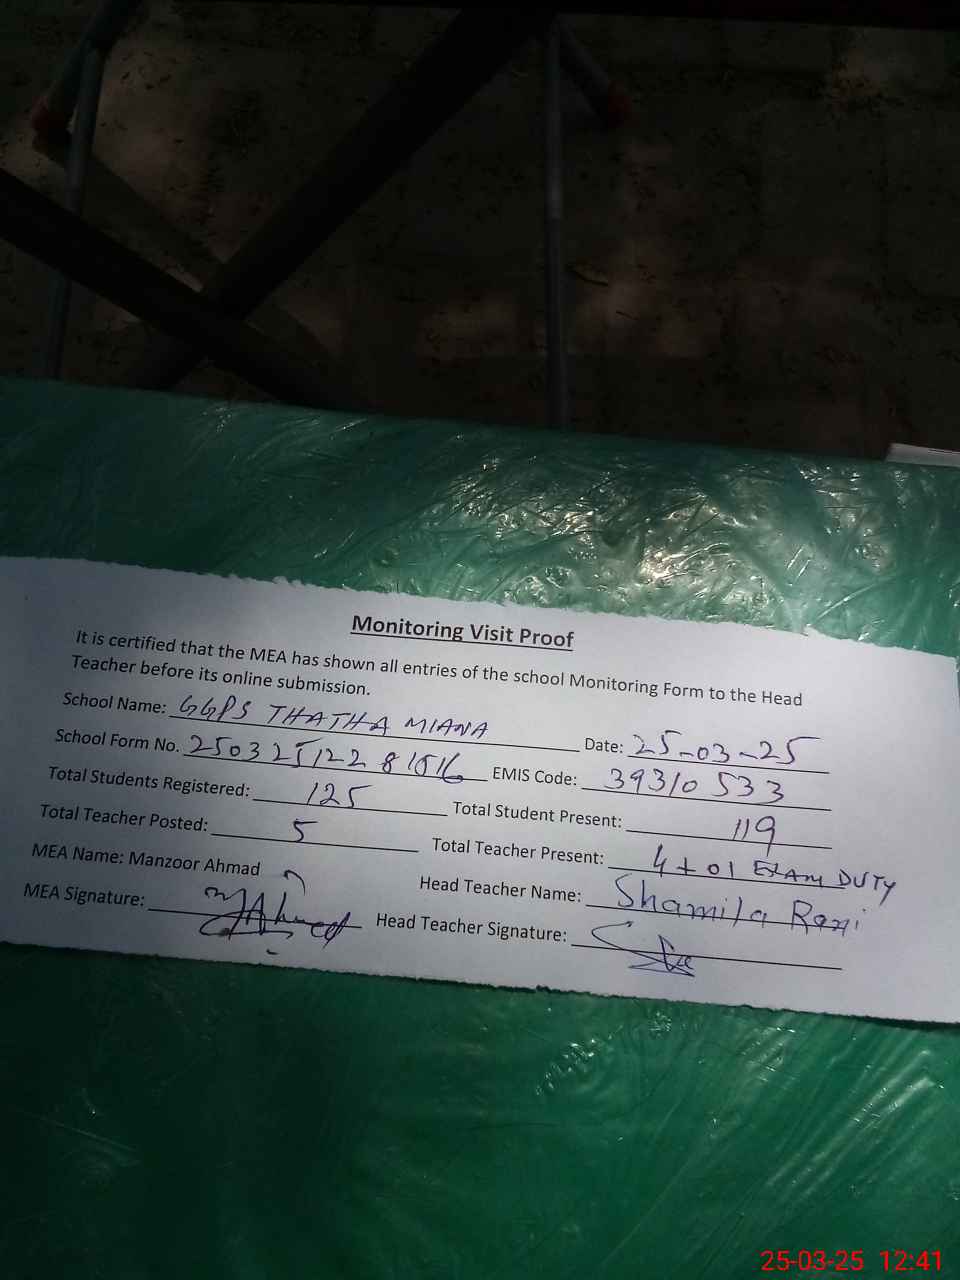 Monitoring Visit Proof
It is certified that the MEA has shown all entries of the school Monitoring Form to the Head
Teacher before its online submission.
School Name: GGPS THATHA MIANA Date: 25-03-25
School Form No. 25032512281516 EMIS Code: 39310533
Total Students Registered: 125 Total Student Present: 119
Total Teacher Posted: 5 Total Teacher Present: 4+01 EXAM DUTY
MEA Name: Manzoor Ahmad Head Teacher Name: Shamila Rani
MEA Signature: MAhmed Head Teacher Signature:
25-03-25 12:41